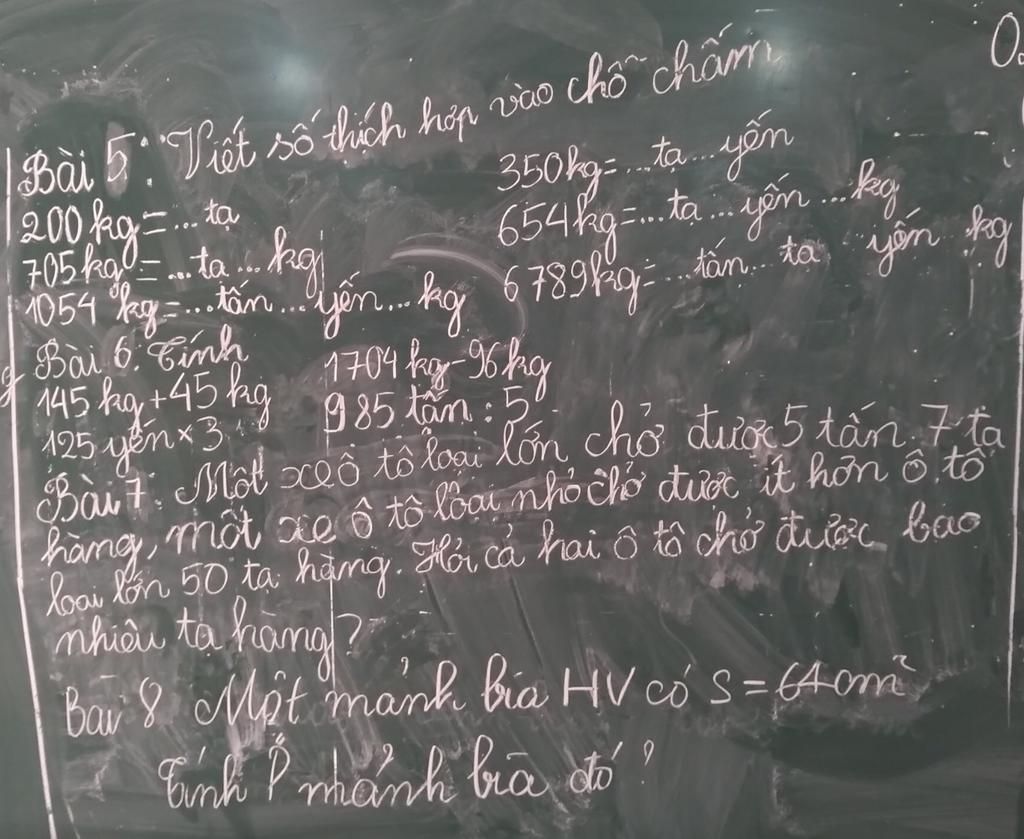 Bài 5: Viết số thích hợp vào chỗ chấm
200kg=...tạ
350kg=...tạ...yến
705kg=...tạ...kg
654kg=...tạ...yến...kg
1054 kg=...tấn...yến...kg
6789kg=...tấn...tạ...yến...kg
Bài 6. Tính
145 kg+45 kg
1704 kg-96kg
125 yến×3
985 tấn:5
Bài 7. Một xe ô tô loại lớn chở được 5 tấn 7 tạ
hàng, một xe ô tô loại nhỏ chở được ít hơn ô tô
loại lớn 50 tạ hàng. Hỏi cả hai ô tô chở được bao
nhiêu tạ hàng?
Bài 8 Một mảnh bìa HV có S=64cm²
Tính P mảnh bìa đó?